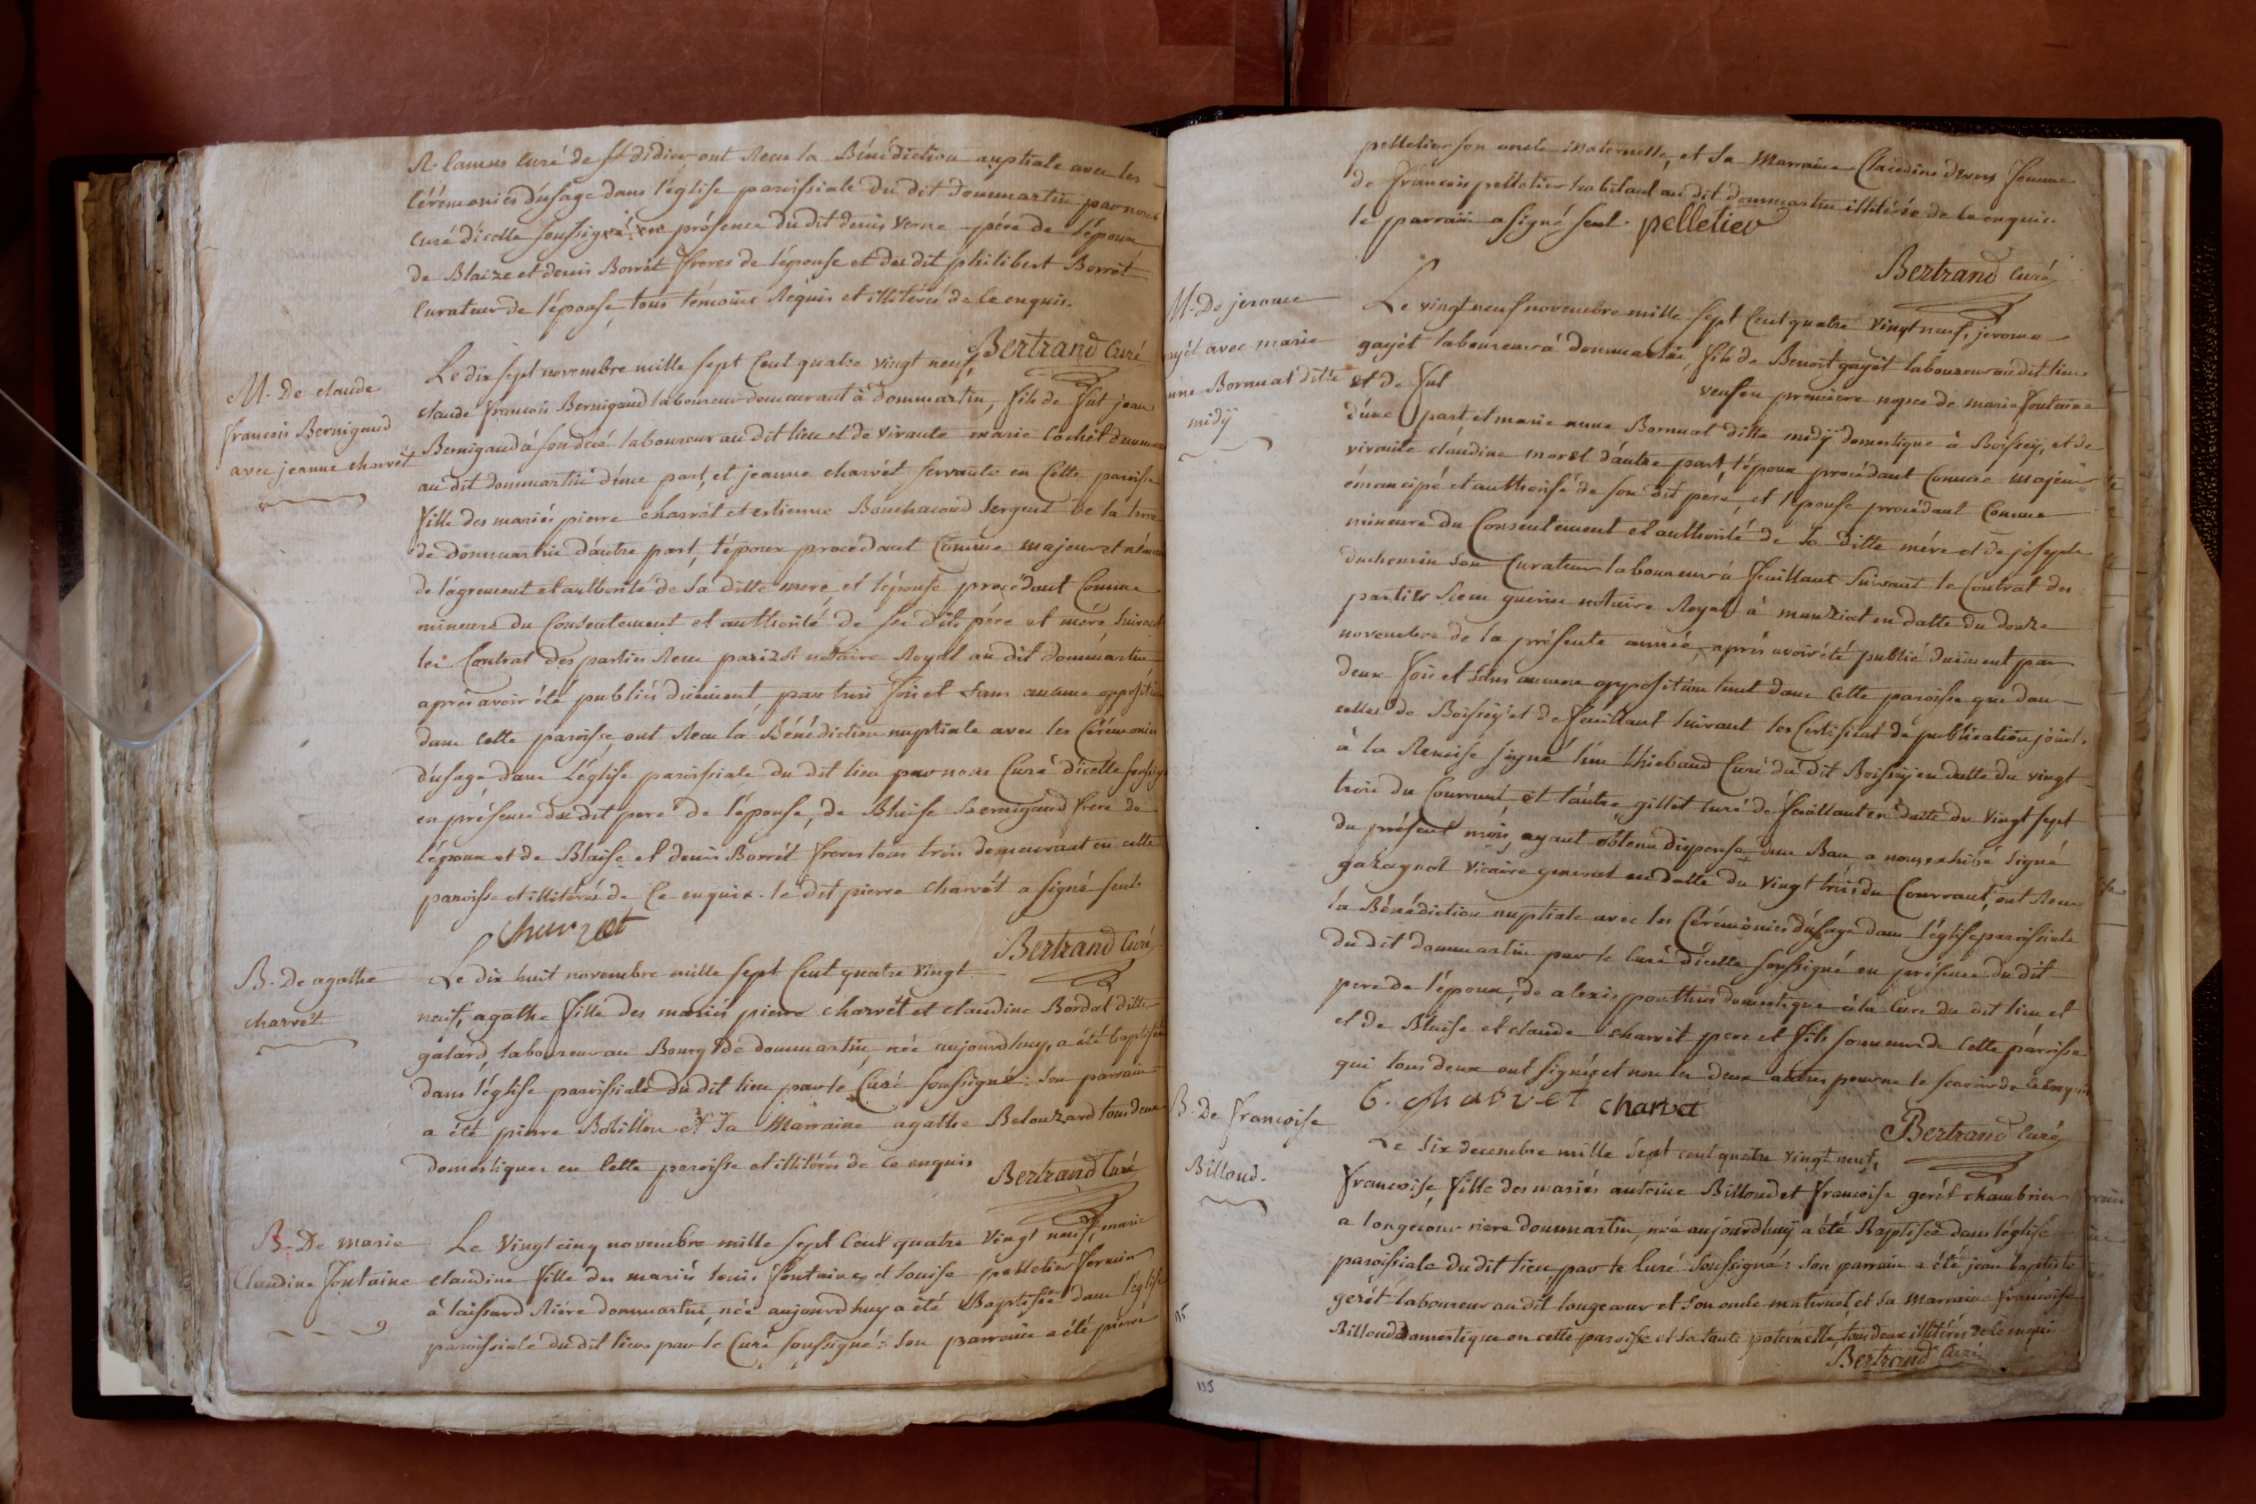 curé de St didier ont Receu la Bénédiction nuptiale avec les
Cérémonies d'usage dans l'église paroissiale du dit dommartin par nous
curé d'icelle soussigné, en présence du dit denis Verne père de l'époux
de Blaize et denis Borrèt frères de l'épouse et du dit philibert Borrèt
Curateur de l'épouse, tous témoins Requis et illitérés de ce enquis.
Bertrand Curé
M. De claude
françois Bernigaud
avec jeanne charvèt
Le dix sept novembre mille sept Cent quatre vingt neuf,
claude françois Bernigaud laboureur demeurant à dommartin, fils de fut jean
Bernigaud à son décé laboureur au dit lieu et de vivante marie Cochèt
au dit dommartin d'une part, et jeanne charvèt servante en Cette paroisse
fille des mariés pierre charvèt et estienne Bouchacourd sergent de la terre
de dommartin d'autre part, l'époux procédant Comme majeur et
de l'agrement et authorité de sa ditte mere, et l'épouse procédant Comme
mineure du Consentement et authorité de ses dits père et mère, suivant
le Contrat des parties Receu parizot notaire Royal au dit dommartin
après avoir été publiés duëment par trois fois et sans aucune opposition
dans cette paroisse, ont Receu la Bénédiction nuptiale avec les Cérémonies
d'usage dans l'église paroissiale du dit lieu par nous Curé d'icelle soussigné
en présence du dit pere de l'épouse, de Blaise Bernigaud frere de
l'époux et de Blaise et denis Borrèt freres tous trois demeurant en cette
paroisse et illitérés de Ce enquis. le dit pierre charvèt a signé seul.
Charvet
Bertrand Curé
B. De agathe
charvèt
Le dix huit novembre mille sept Cent quatre vingt
neuf, agathe fille des mariés pierre charvèt et claudine Bordat ditte
galard, laboureur au Bourg de dommartin, née aujourdhuy, a été baptisée
dans l'église paroissiale du dit lieu par le Curé soussigné: son parrain
a été pierre Bobillon et sa Marraine agathe Belouzard tous deux
domestiques en Cette paroisse et illitérés de ce enquis
Bertrand Curé
B. De marie
Claudine fontaine
Le Vingt cinq novembre mille sept Cent quatre Vingt neuf, marie
claudine fille des mariés louis fontaine et louise pelletier fermier
à laissard Riére dommartin, née aujourdhuy a été Baptisée dans l'église
paroissiale du dit lieu par le Curé soussigné: son parrain a été pierre
pelletier son oncle maternelle, et sa Marraine Claudine femme
de françois pelletier habitant au dit dommartin illitérée de ce enquis.
le parrain a signé seul. pelletier
Bertrand Curé
M. De jerome
gayèt avec marie
anne Bornuat ditte
midÿ
Le vingt neuf novembre mille sept Cent quatre Vingt neuf, jerome
gayèt laboureur à dommartin, fils de Benoit gayèt laboureur au dit lieu
et de fut veuf en première nopce de marie fontaine
d'une part, et marie anne Bornuat ditte midÿ domestique à Boissey, et de
vivante claudine morel d'autre part, l'époux procédant Comme majeur
émancipé et authorisé de son dit père, et l'épouse procédant Comme
mineure du Consentement et authorité de sa ditte mére et de joseph
duchemin son Curateur laboureur à feuillant suivant le Contrat des
parties Receu guerin notaire Royal à manziat en datte du douze
novembre de la présente année, après avoir été publié duëment par
deux fois et sans aucune opposition tant dans cette paroisse que dans
celles de Boissey et de feuillant suivant les Certificat de publication joint
à la Remise signé l'un thiebaud Curé du dit Boissey en datte du vingt
trois du Courrant, et l'autre, gillèt curé de feüillant en datte du vingt sept
du présent mois, ayant obtenu dispense d'un Ban a nous exhibé signé
garagnol vicaire general en datte du vingt trois du Courrant, ont Receu
la Bénédiction nuptiale avec les Cérémonies d'usage dans l'église paroissiale
du dit dommartin par le Curé d'icelle soussigné en présence du dit
pere de l'époux, de alexis pouthus domestique à la Cure du dit lieu et
et de Blaise et claude charvèt pere et fils sonneurs de cette paroisse
qui tous deux ont signés et non les deux autres pour ne le scavoir de ce enquis
C. charvet charvet
Bertrand Curé
B. De françoise
Billoud.
Le six decembre mille sept cent quatre vingt neuf,
françoise, fille des mariés antoine Billoud et françoise gerèt chambrier
a longecour riere dommartin, née aujourdhuÿ a été Baptisée dans l'église
paroissiale du dit lieu, par le Curé soussigné: son parrain a été jean baptiste
gerèt laboureur au dit longecour et son oncle maternel, et sa marraine françoise
Billoud domestique en cette paroisse et sa tante paternelle, tous deux illitérés de ce enquis
Bertrand Curé
115